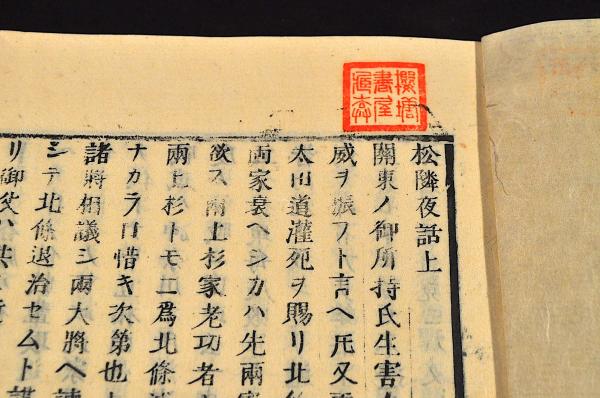 櫻塘
書屋
松隣夜話上
關東ノ御所持氏生害
威ヲ振フト言ヘ𪜈又
太田道灌死ヲ賜リ北
両家衰ヘシカハ先兩
欲ス兩上杉家老功者
兩上杉トモニ爲北條
ナカラ口惜キ次第也
諸將相議シ兩大將ヘ
シテ北條退治セムト
リ御父ハ共